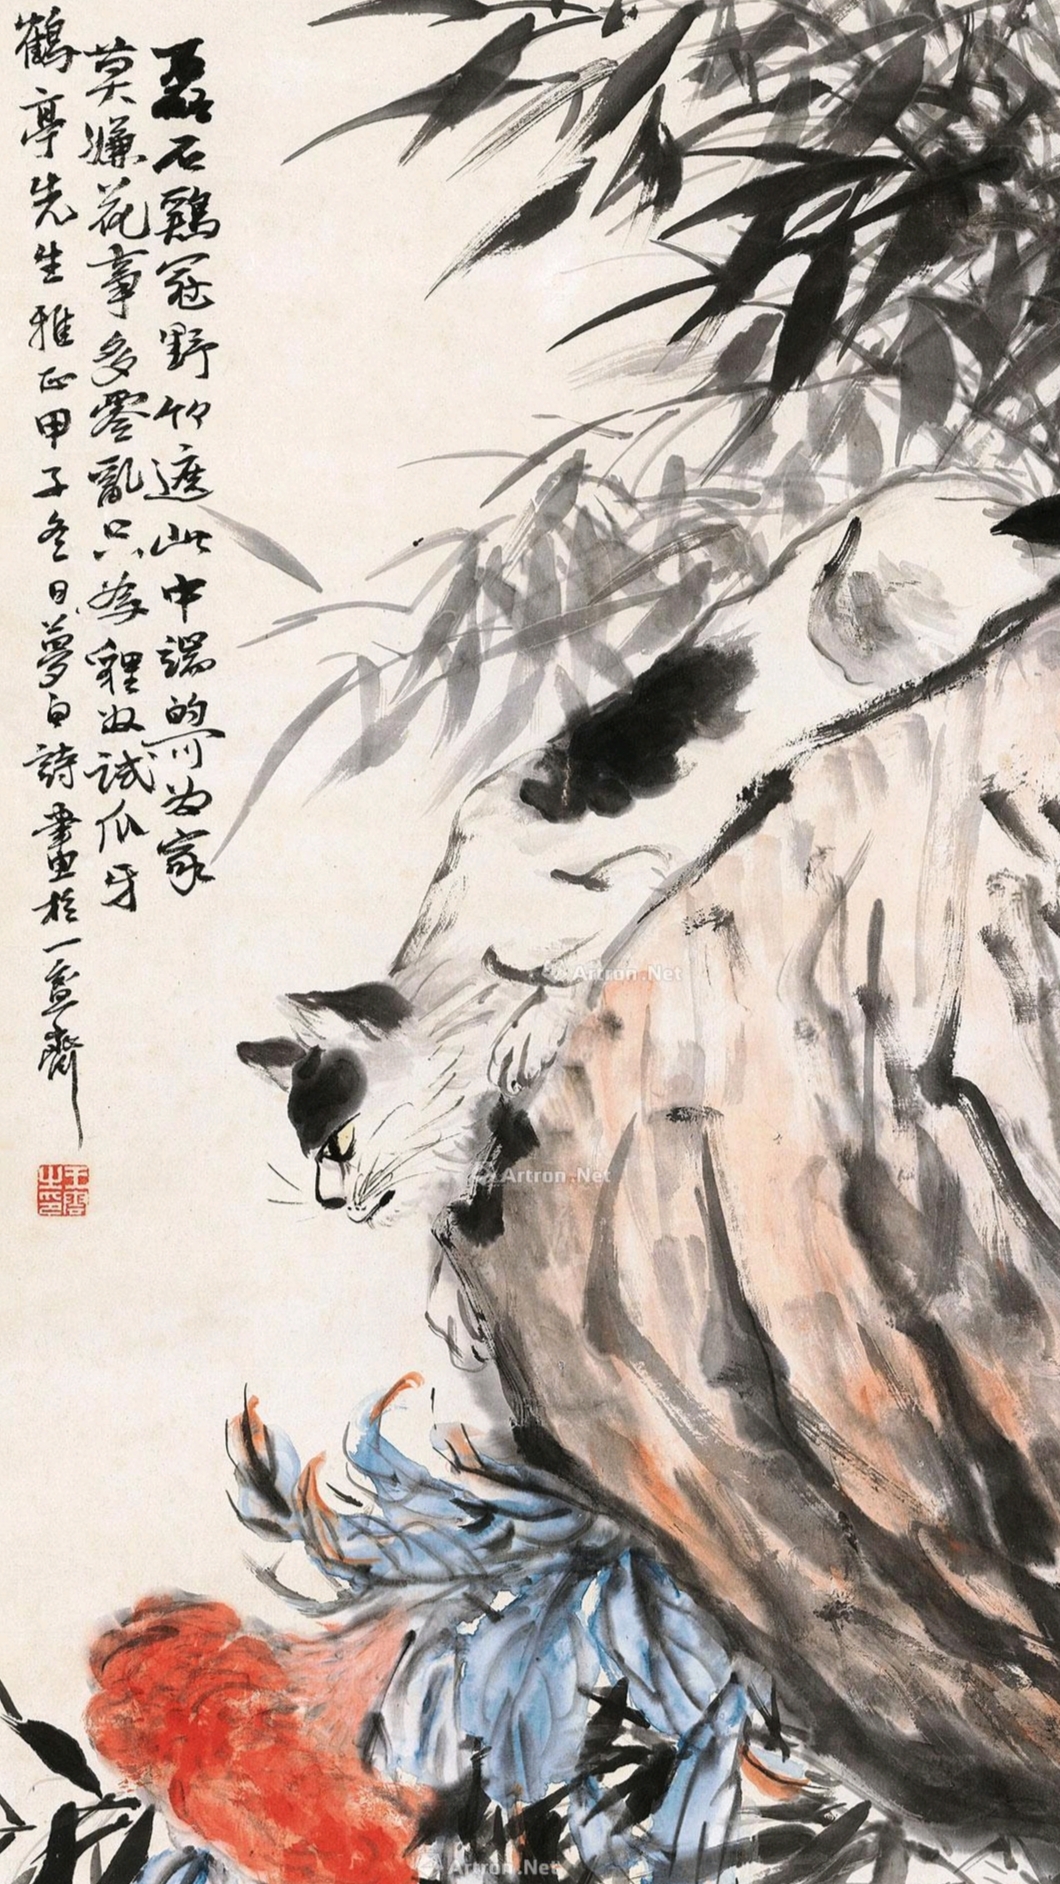 磊石鷄冠野竹遮此中端的可为家
莫嫌花事多零亂只為貍奴試爪牙
鶴亭先生雅正甲子冬日夢白詩畫於一壺齋
王雲之印
Artron.Net
Artron.Net
Artron.Net